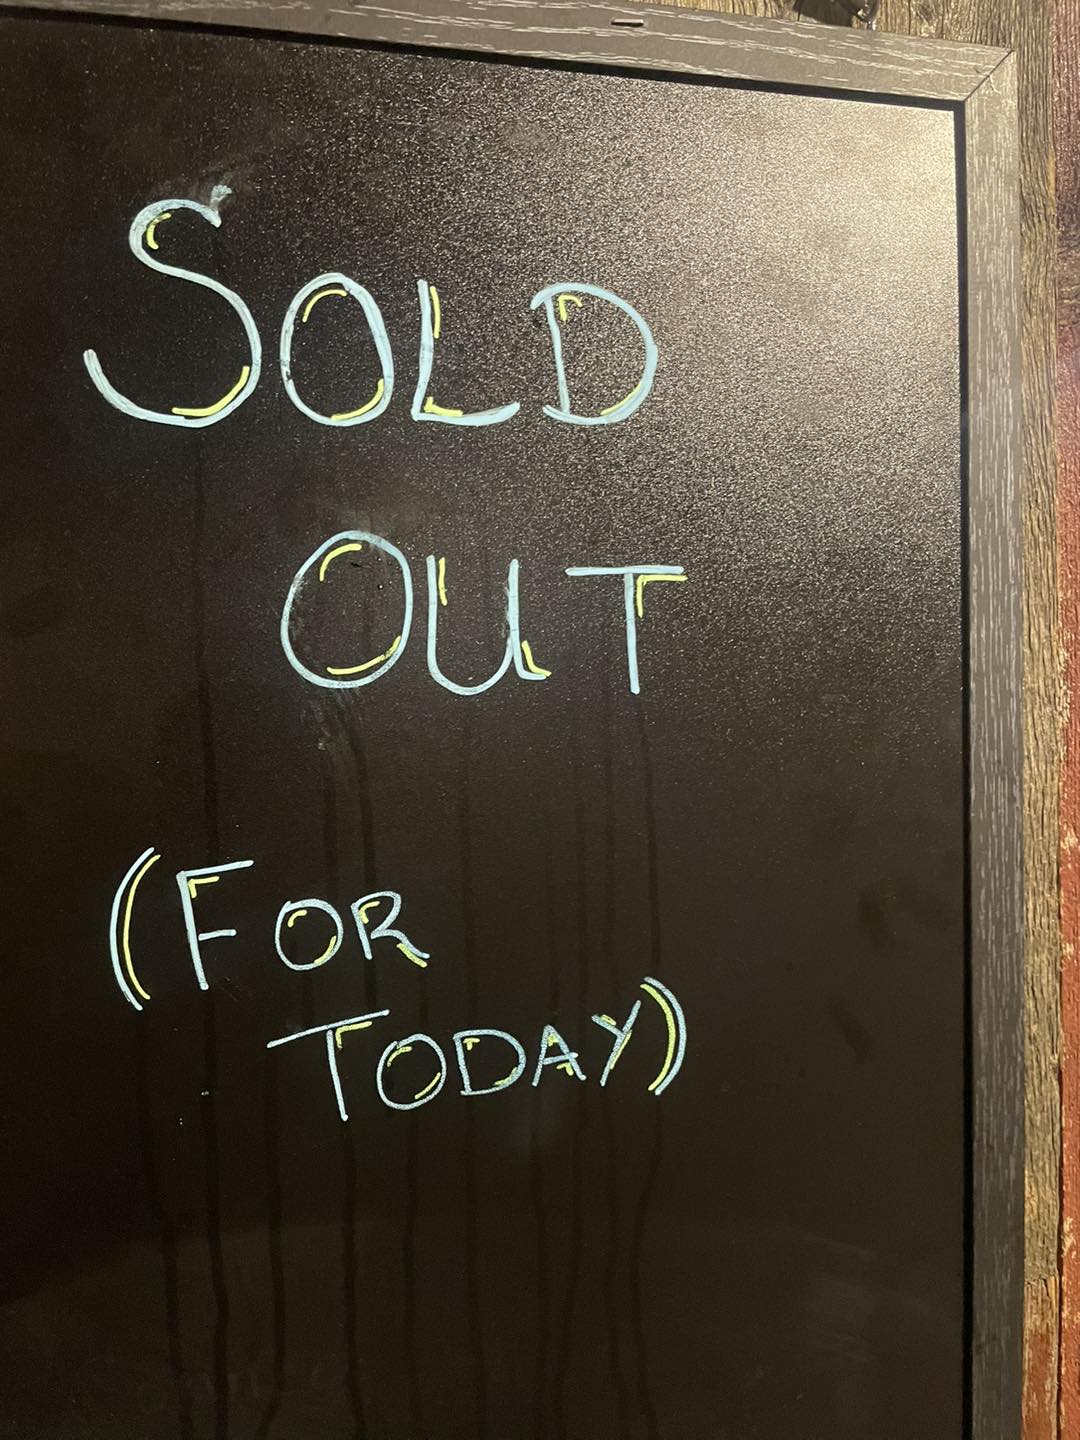 SOLD
OUT
(FOR
TODAY)